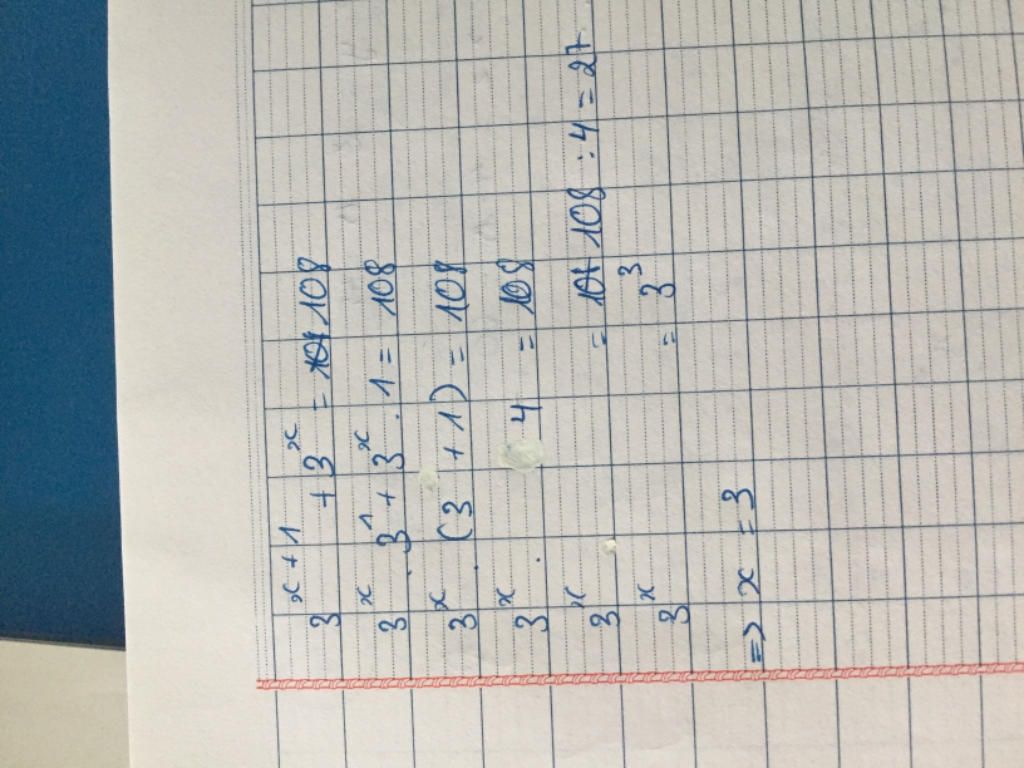 3^{x+1} + 3^x = 108
3^x . 3^1 + 3^x . 1 = 108
3^x . (3 + 1) = 108
3^x . 4 = 108
3^x = 108 : 4 = 27
3^x = 3^3
=> x = 3